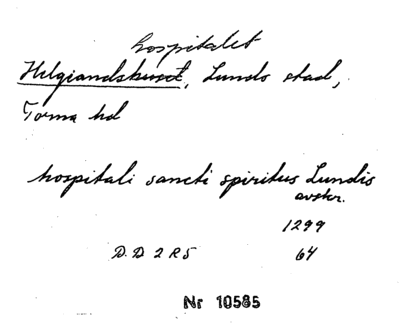 hospitalet
Helgiandshuset, Lunds stad,
Torna hd
hospitali sancti spiritus Lundis
avskr.
1299
D.D 2 R 5 64
Nr 10585